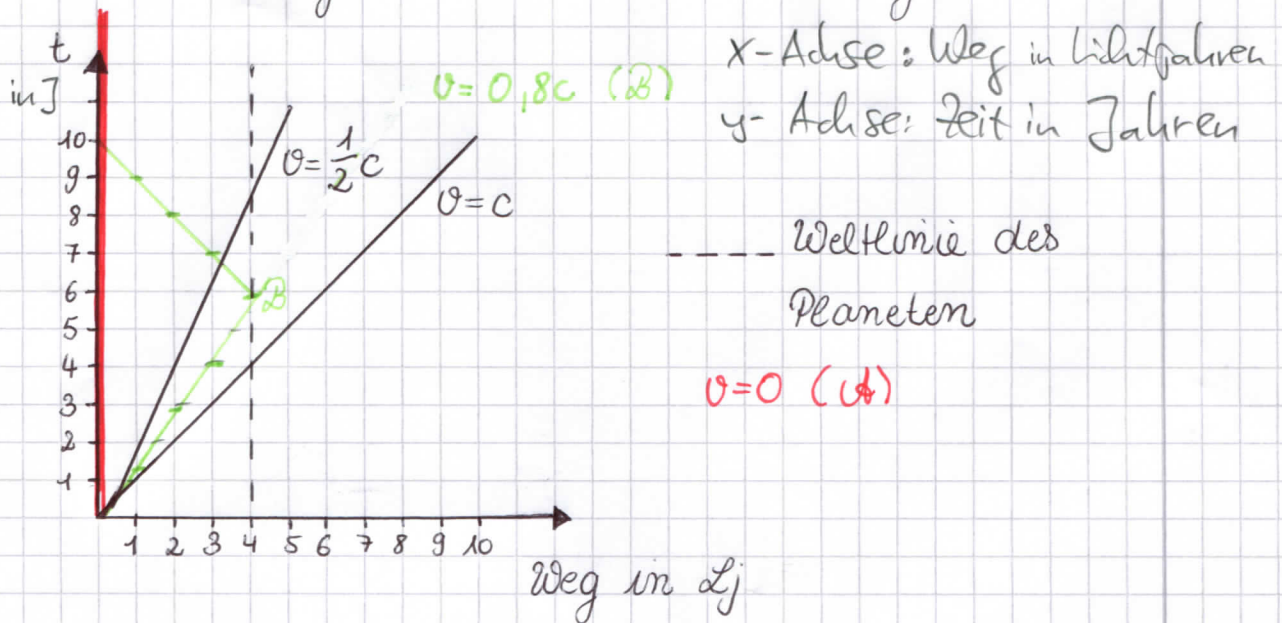 t
in J
10
9
8
7
6
5
4
3
2
1
1 2 3 4 5 6 7 8 9 10
Weg in Lj
v = 0,8c (B)
v = 1/2 c
v = c
B
x-Achse: Weg in Lichtjahren
y-Achse: Zeit in Jahren
---- Weltlinie des
Planeten
v=0 (A)